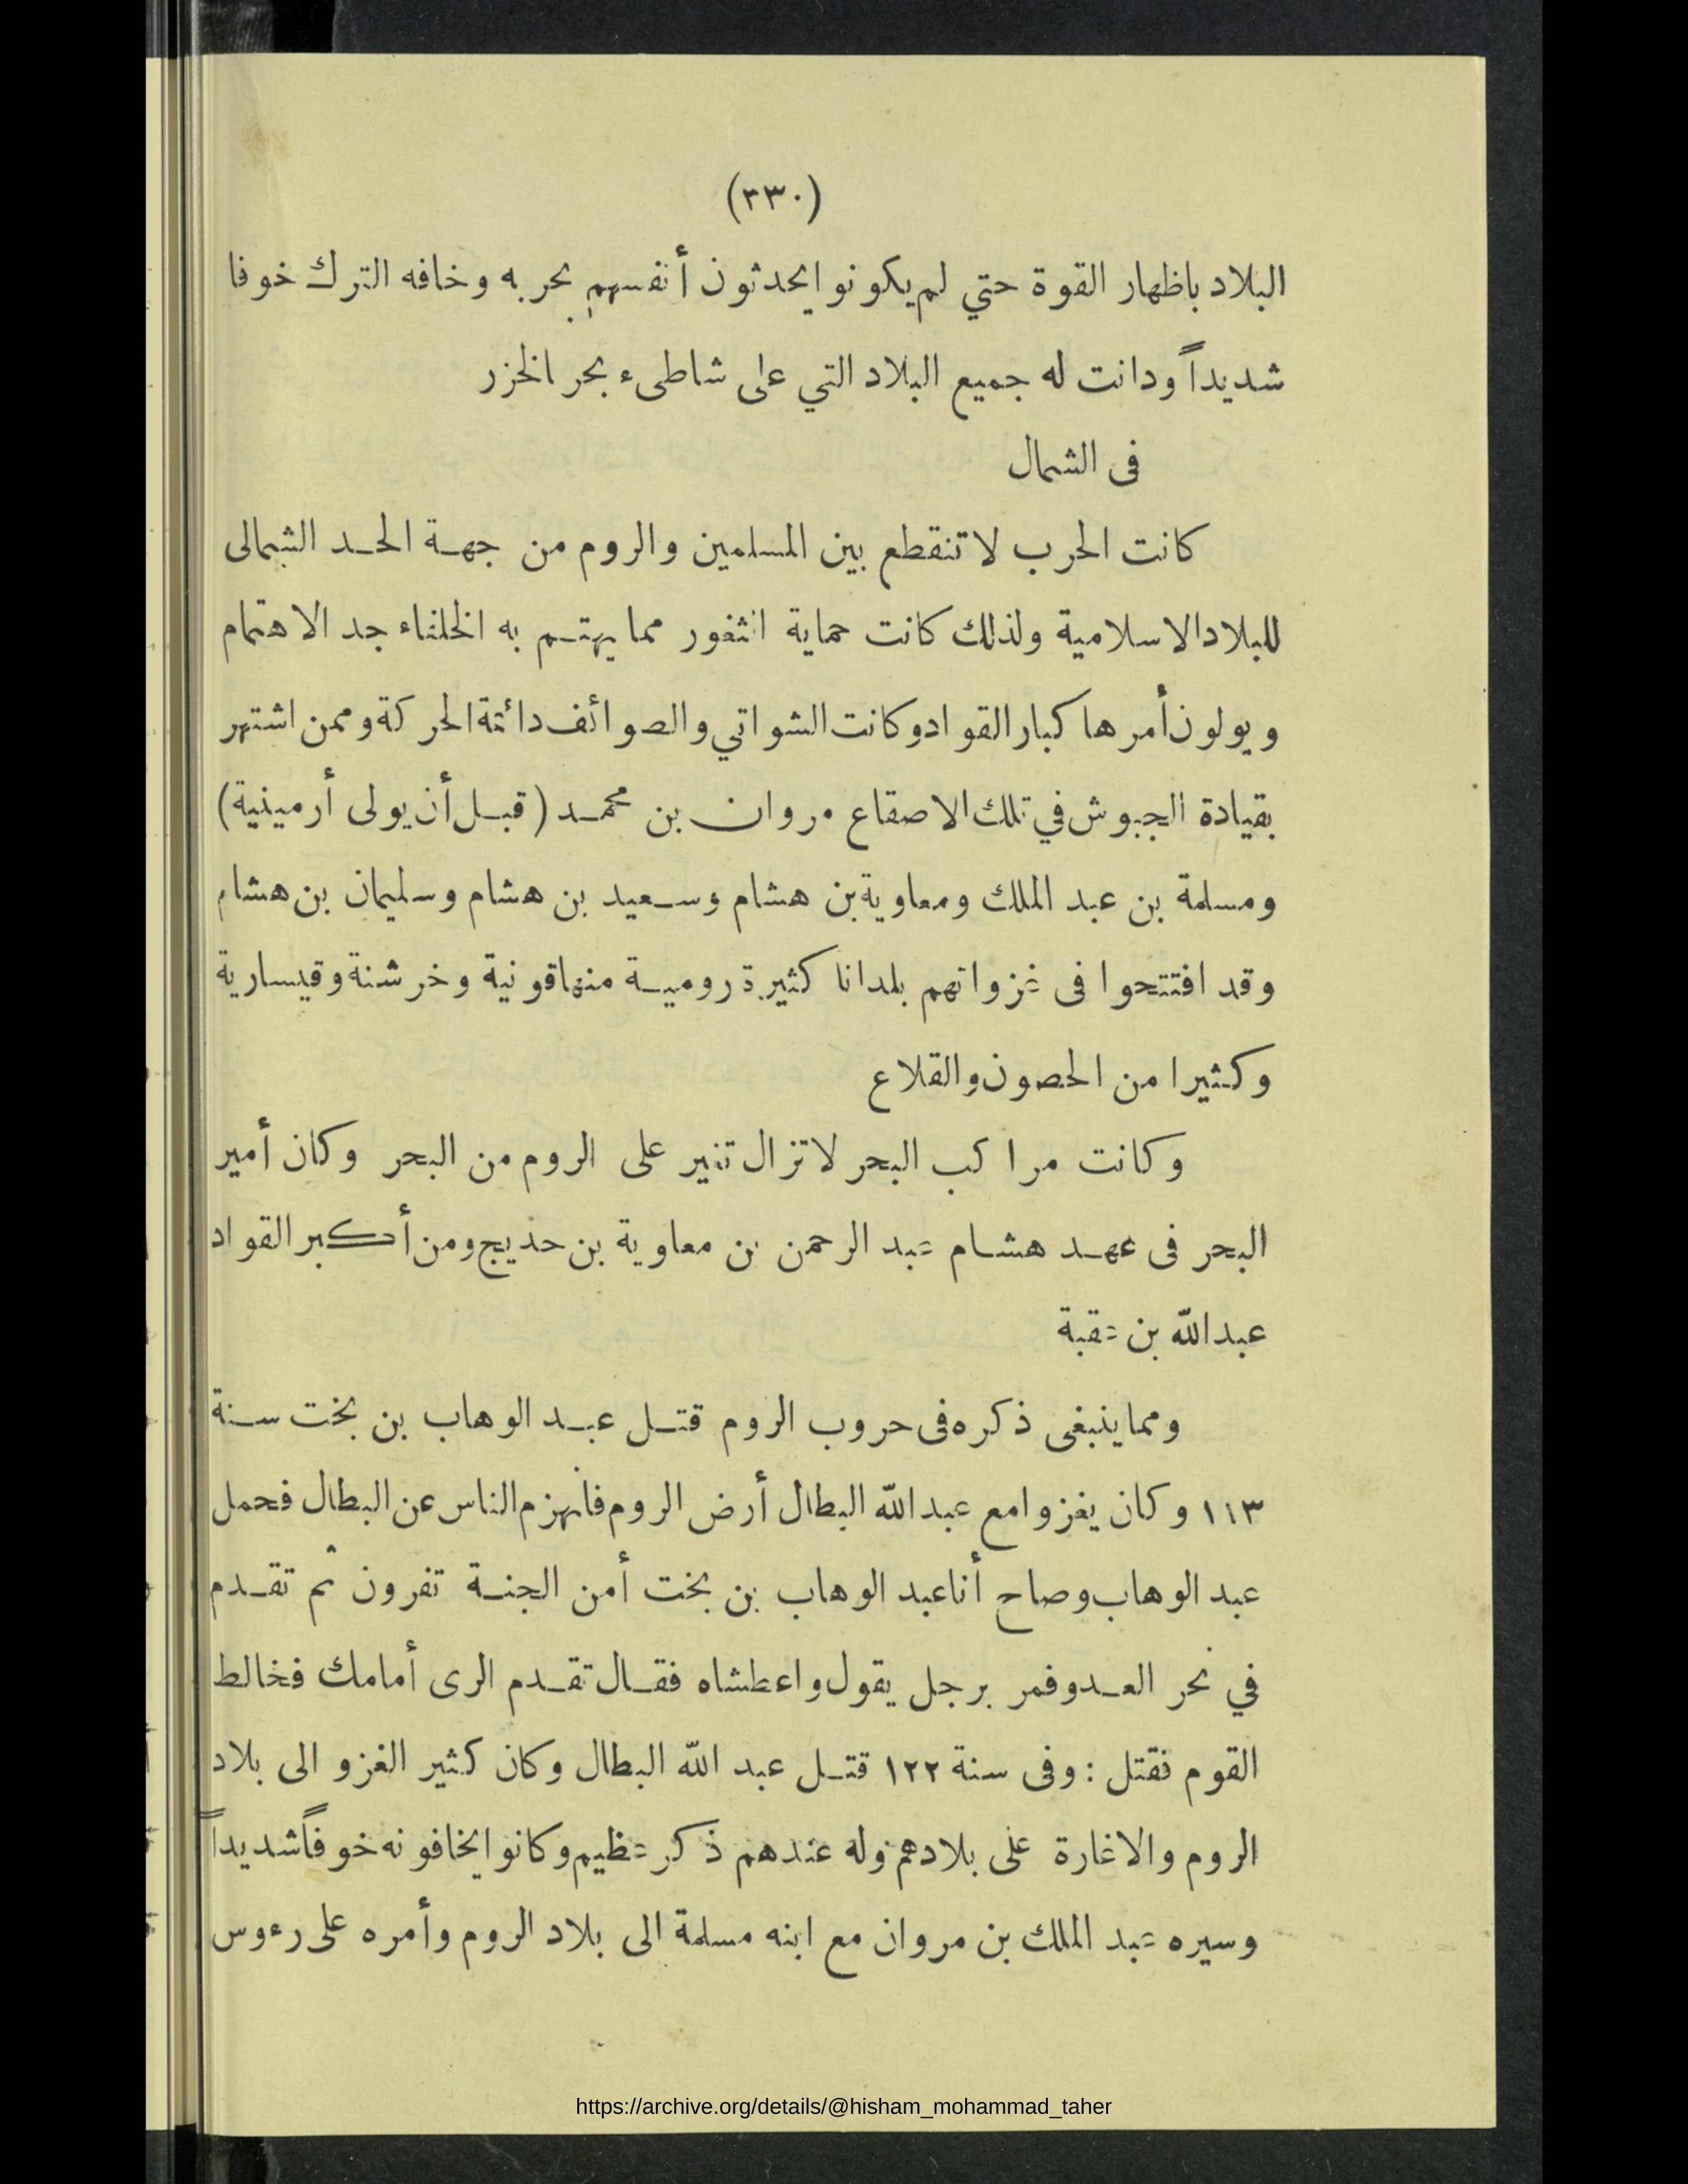 (٣٣٠)
البلاد باظهار القوة حتي لم يكونوا يحدثون أنفسهم بحربه وخافه الترك خوفا
شديداً ودانت له جميع البلاد التي على شاطىء بحر الخزر
فى الشمال
كانت الحرب لا تنقطع بين المسلمين والروم من جهة الحد الشمالى
للبلاد الاسلامية ولذلك كانت حماية الثغور مما يهتم به الخلفاء جد الاهتمام
ويولون أمرها كبار القواد وكانت الشواتي والصوائف دائمة الحركة وممن اشتهر
بقيادة الجيوش في تلك الاصقاع مروان بن محمد (قبل أن يولى أرمينية)
ومسلمة بن عبد الملك ومعاوية بن هشام وسعيد بن هشام وسليمان بن هشام
وقد افتتحوا فى غزواتهم بلدانا كثيرة رومية منها قونية وخرشنة وقيسارية
وكثيرا من الحصون والقلاع
وكانت مراكب البحر لا تزال تغير على الروم من البحر وكان أمير
البحر فى عهد هشام عبد الرحمن بن معاوية بن حديج ومن أكبر القواد
عبد الله بن عقبة
ومما ينبغى ذكره فى حروب الروم قتل عبد الوهاب بن بخت سنة
١١٣ وكان يغزوا مع عبد الله البطال أرض الروم فأنهزم الناس عن البطال فحمل
عبد الوهاب وصاح أنا عبد الوهاب بن بخت أمن الجنة تفرون ثم تقدم
في نحر العدو فمر برجل يقول واعطشاه فقال تقدم الرى أمامك فخالط
القوم فقتل : وفى سنة ١٢٢ قتل عبد الله البطال وكان كثير الغزو الى بلاد
الروم والاغارة على بلادهم وله عندهم ذكر عظيم وكانوا يخافونه خوفاً شديداً
وسيره عبد الملك بن مروان مع ابنه مسلمة الى بلاد الروم وأمره على رءوس
https://archive.org/details/@hisham_mohammad_taher